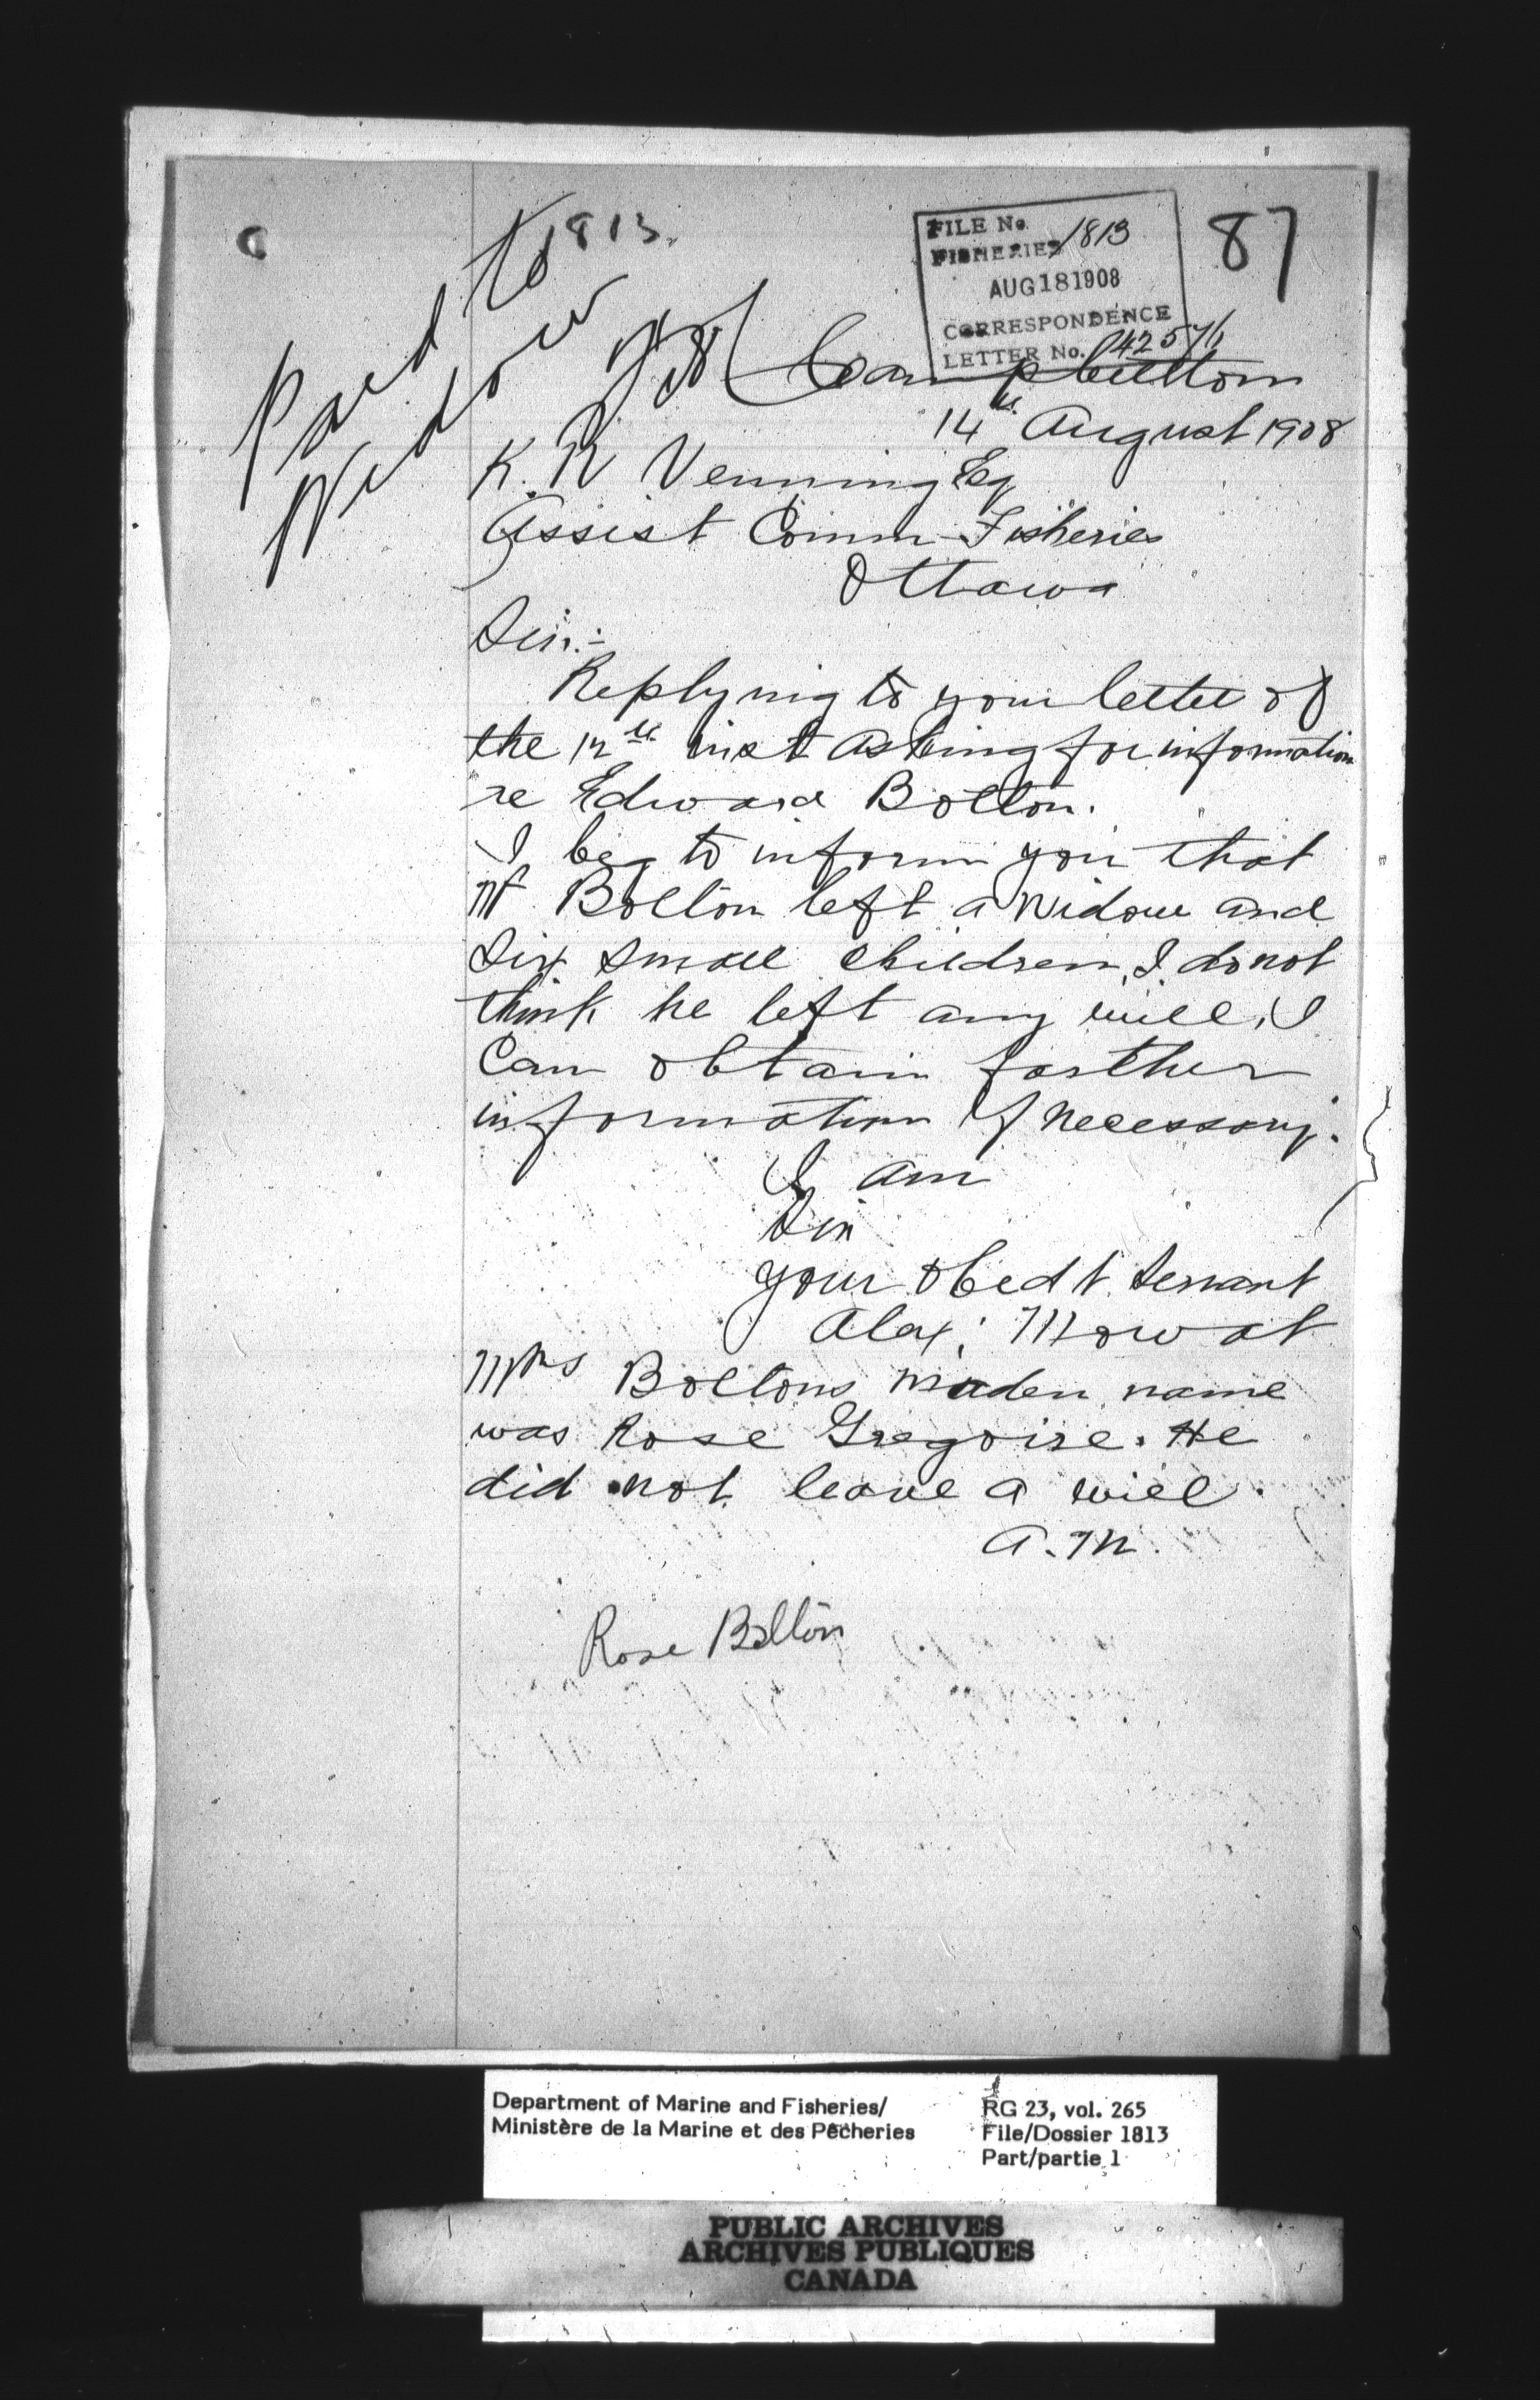 1813.
87
FILE No.
FISHERIES 1813
AUG 18 1908
CORRESPONDENCE
LETTER No. 42571
Paid to
Widow
Campbellton
14th August 1908
R. N. Venning Esq
Assist Comm Fisheries
Ottawa
Sir:-
Replying to your letter of
the 12th inst asking for information
re Edward Bolton.
I beg to inform you that
Mr Bolton left a widow and
six small children, I do not
think he left any will, I
Can obtain farther
information if necessary.
I am
Sir
your obedt. servant
Alex; Mowat
Mrs Boltons maden name
was Rose Gregoire. He
did not leave a will.
A.M.
Rose Bolton
Department of Marine and Fisheries/
Ministère de la Marine et des Pêcheries
RG 23, vol. 265
File/Dossier 1813
Part/partie 1
PUBLIC ARCHIVES
ARCHIVES PUBLIQUES
CANADA